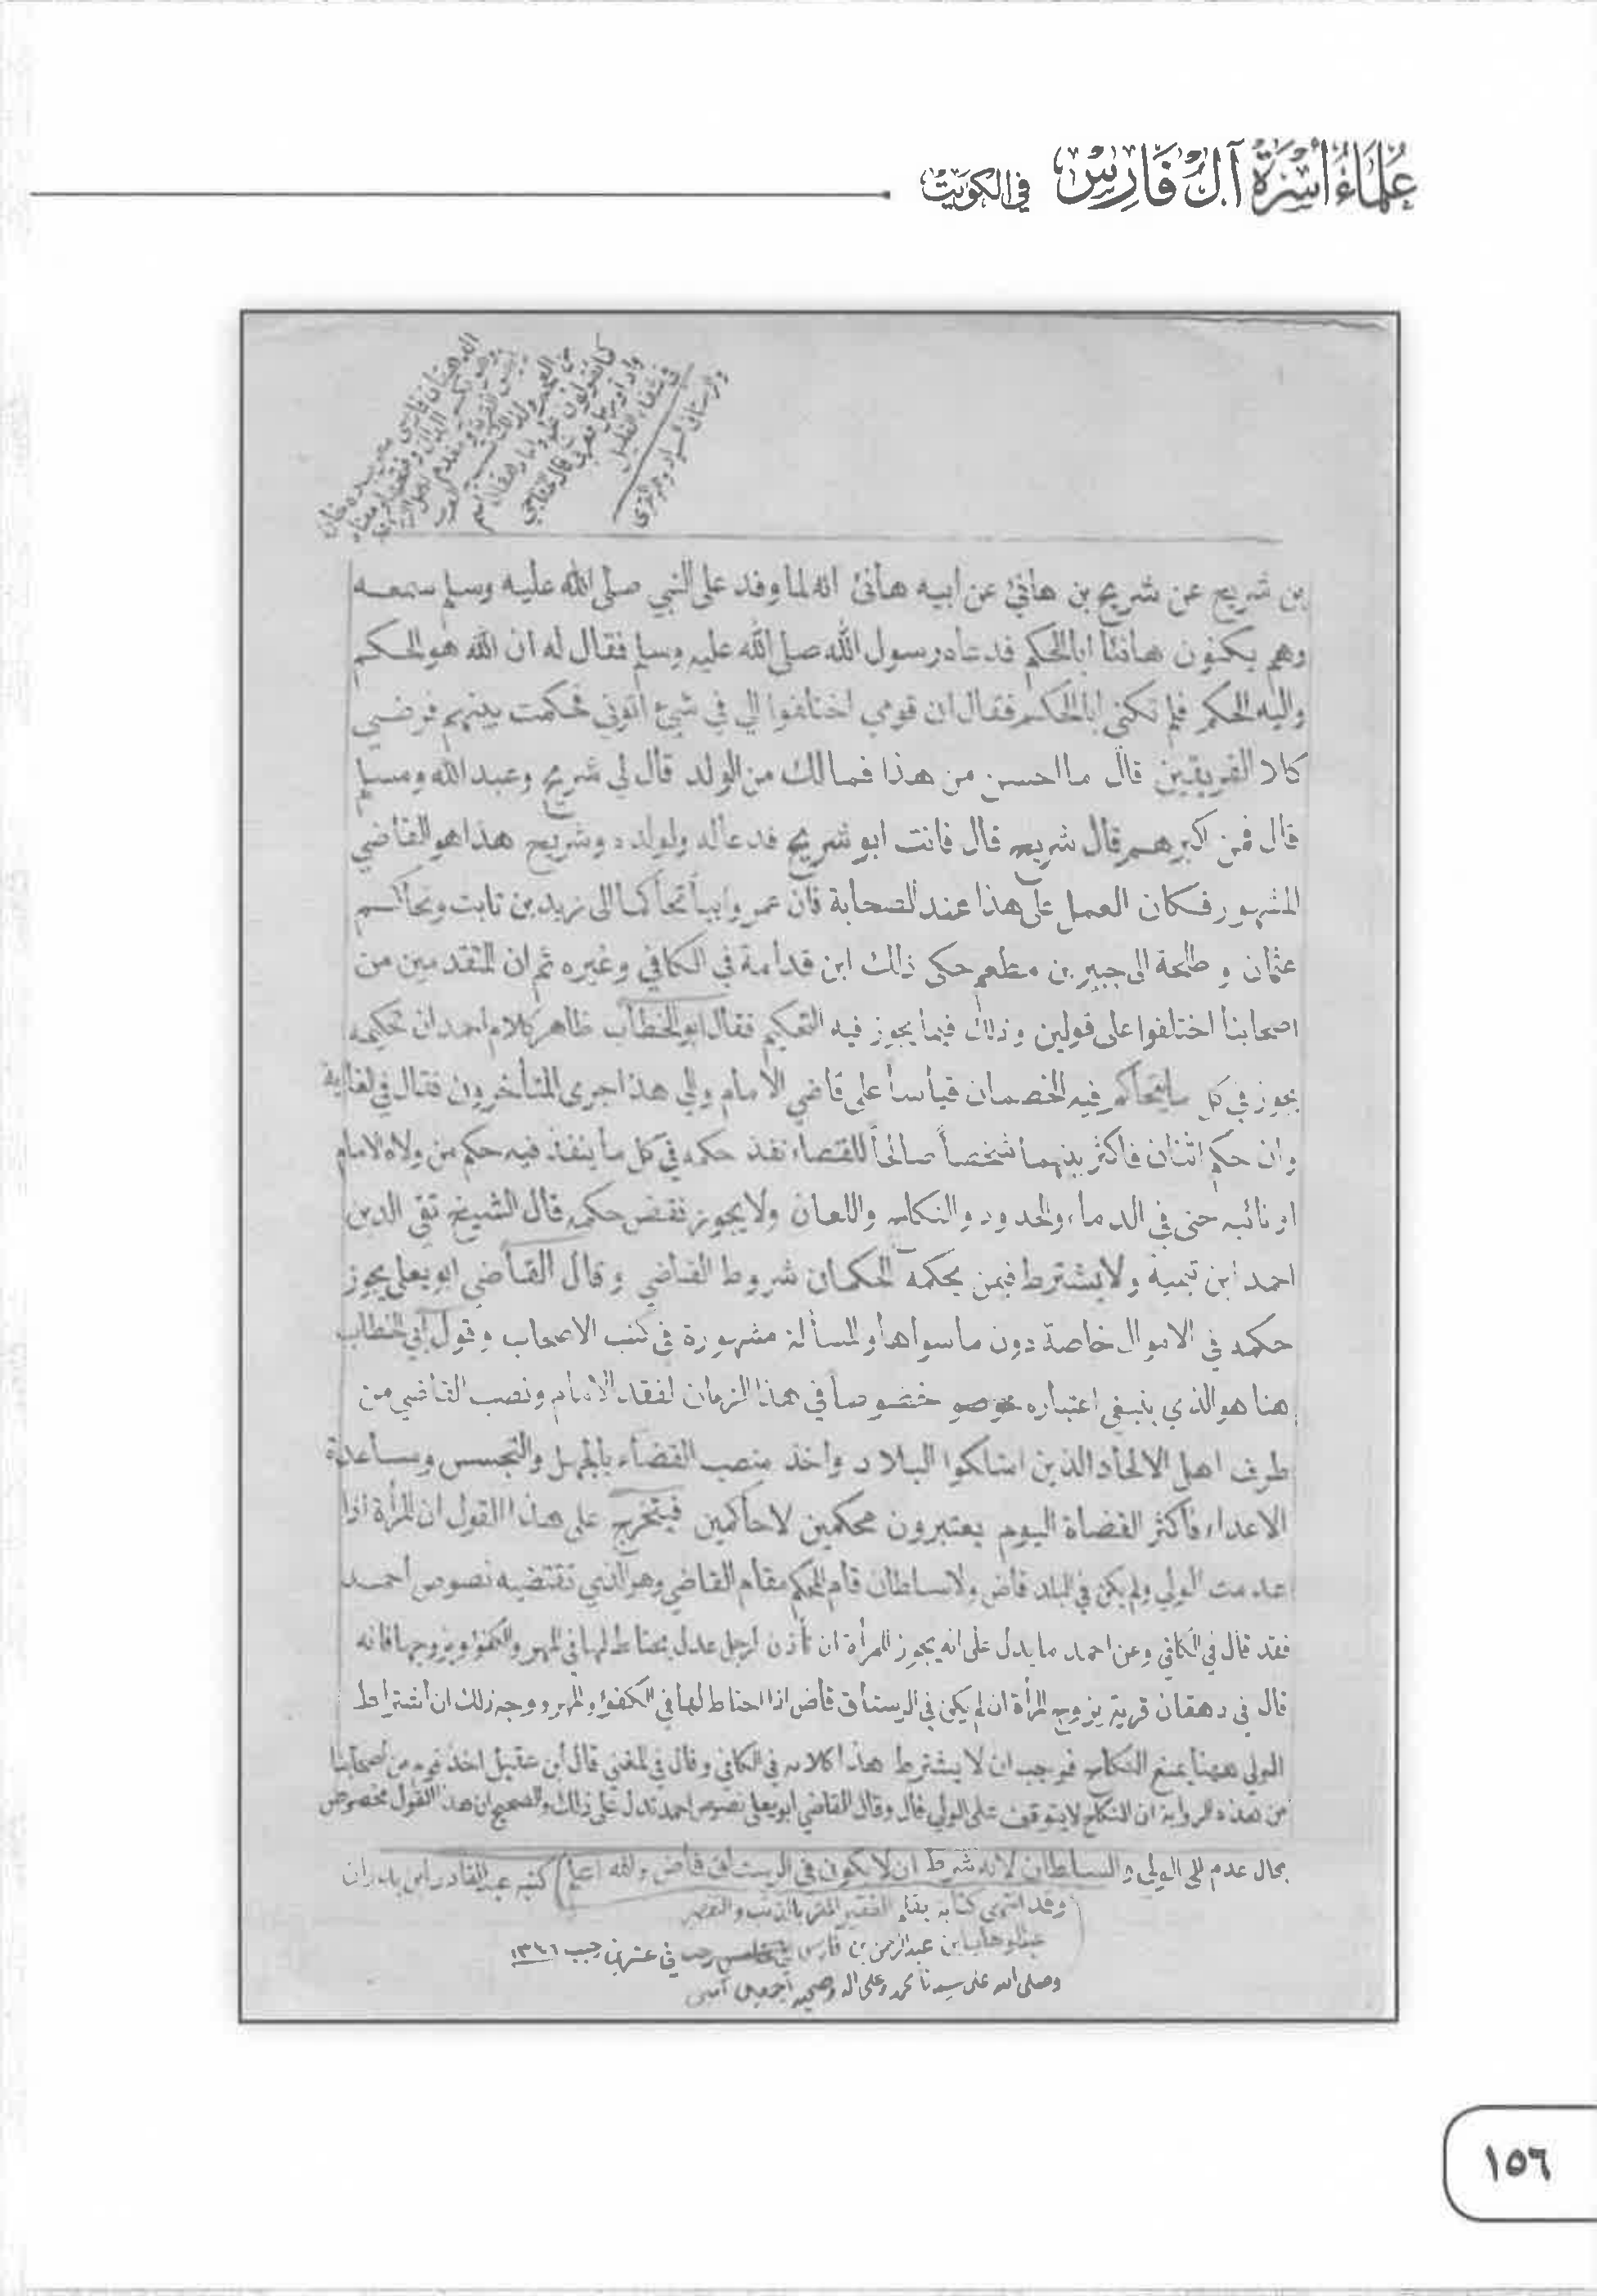 عُلَمَاءُ أُسْرَةِ آل فَارِس في الكويت
الدهقان فارسي معرب ده خان
وهو بكسر الدال ومعناه
رئيس القرية ومقدم
من العجم
كما تقولون
قال الخفاجي
في شفاء الغليل
بن شريح عن شريح بن هانئ عن ابيه هانئ انه لما وفد على النبي صلى الله عليه وسلم سمعه
وهم يكنون هانئا ابا الحكم فدعاه رسول الله صلى الله عليه وسلم فقال له ان الله هو الحكم
واليه الحكم فلم تكنى ابا الحكم فقال ان قومي اختلفوا الي في شيء اتوني فحكمت بينهم فرضي
كلا الفريقين قال ما احسن من هذا فمالك من الولد قال لي شريح وعبد الله ومسلم
قال فمن اكبرهم قال شريح قال فانت ابو شريح فدعا له ولولده وشريح هذا هو القاضي
المشهور فكان العمل على هذا عند الصحابة فان عمر وابيا تحاكما الى زيد بن ثابت وتحاكم
عثمان وطلحة الى جبير بن مطعم حكى ذلك ابن قدامة في الكافي وغيره ثم ان المتقدمين من
اصحابنا اختلفوا على قولين وذلك فيما يجوز فيه التحكيم فقال ابو الخطاب ظاهر كلام احمد ان تحكيمه
يجوز في كل ما يتحاكم فيه الخصمان قياسا على قاضي الامام والى هذا جرى المتأخرون فقال في الغاية
وان حكم اثنان فاكثر بينهما شخصاً صالحاً للقضاء نفذ حكمه في كل ما ينفذ فيه حكم من ولاه الامام
او نائبه حتى في الدماء والحدود والنكاح واللعان ولا يجوز نقض حكمه قال الشيخ تقي الدين
احمد ابن تيمية ولا يشترط فيمن يحكمه الحكمان شروط القاضي وقال القاضي ابو يعلى يجوز
حكمه في الاموال خاصة دون ما سواها والمسألة مشهورة في كتب الاصحاب وقول ابي الخطاب
هنا هو الذي ينبغي اعتباره خصوصا في هذا الزمان لفقد الامام ونصب القاضي من
طرف اهل الالحاد الذين امتلكوا البلاد واخذ منصب القضاء بالجهل والتجسس ومساعدة
الاعداء فأكثر القضاة اليوم يعتبرون محكمين لا حاكمين فيتخرج على هذا القول ان المرأة اذا
عدمت الولي ولم يكن في البلد قاض ولا سلطان قام المحكم مقام القاضي وهو الذي تقتضيه نصوص احمد
فقد قال في الكافي وعن احمد ما يدل على انه يجوز للمرأة ان تأذن لرجل عدل يحتاط لها في المهر والكفؤ ويزوجها فانه
قال في دهقان قرية يزوج المرأة ان لم يكن في الرستاق قاض اذا احتاط لها في الكفؤ والمهر ووجه ذلك ان اشتراط
الولي ههنا يمنع النكاح فوجب ان لا يشترط هذا كلامه في الكافي وقال في المغني قال ابن عقيل اخذ قوم من اصحابنا
من هذه الرواية ان النكاح لا يتوقف على الولي قال وقال القاضي ابو يعلى نصوص احمد تدل على ذلك والصحيح ان هذا القول مخصوص
بحال عدم الولي والسلطان لانه شرط ان لا يكون في الرستاق قاض والله اعلم كتبه عبد القادر ابن بدران
وقد انتهى كتابه بقلم الفقير المقر بالذنب والتقصير
عبد الوهاب بن عبد الرحمن بن فارس في عشرين رجب ١٣٤٦
وصلى الله على سيدنا محمد وعلى اله وصحبه اجمعين آمين
١٥٦